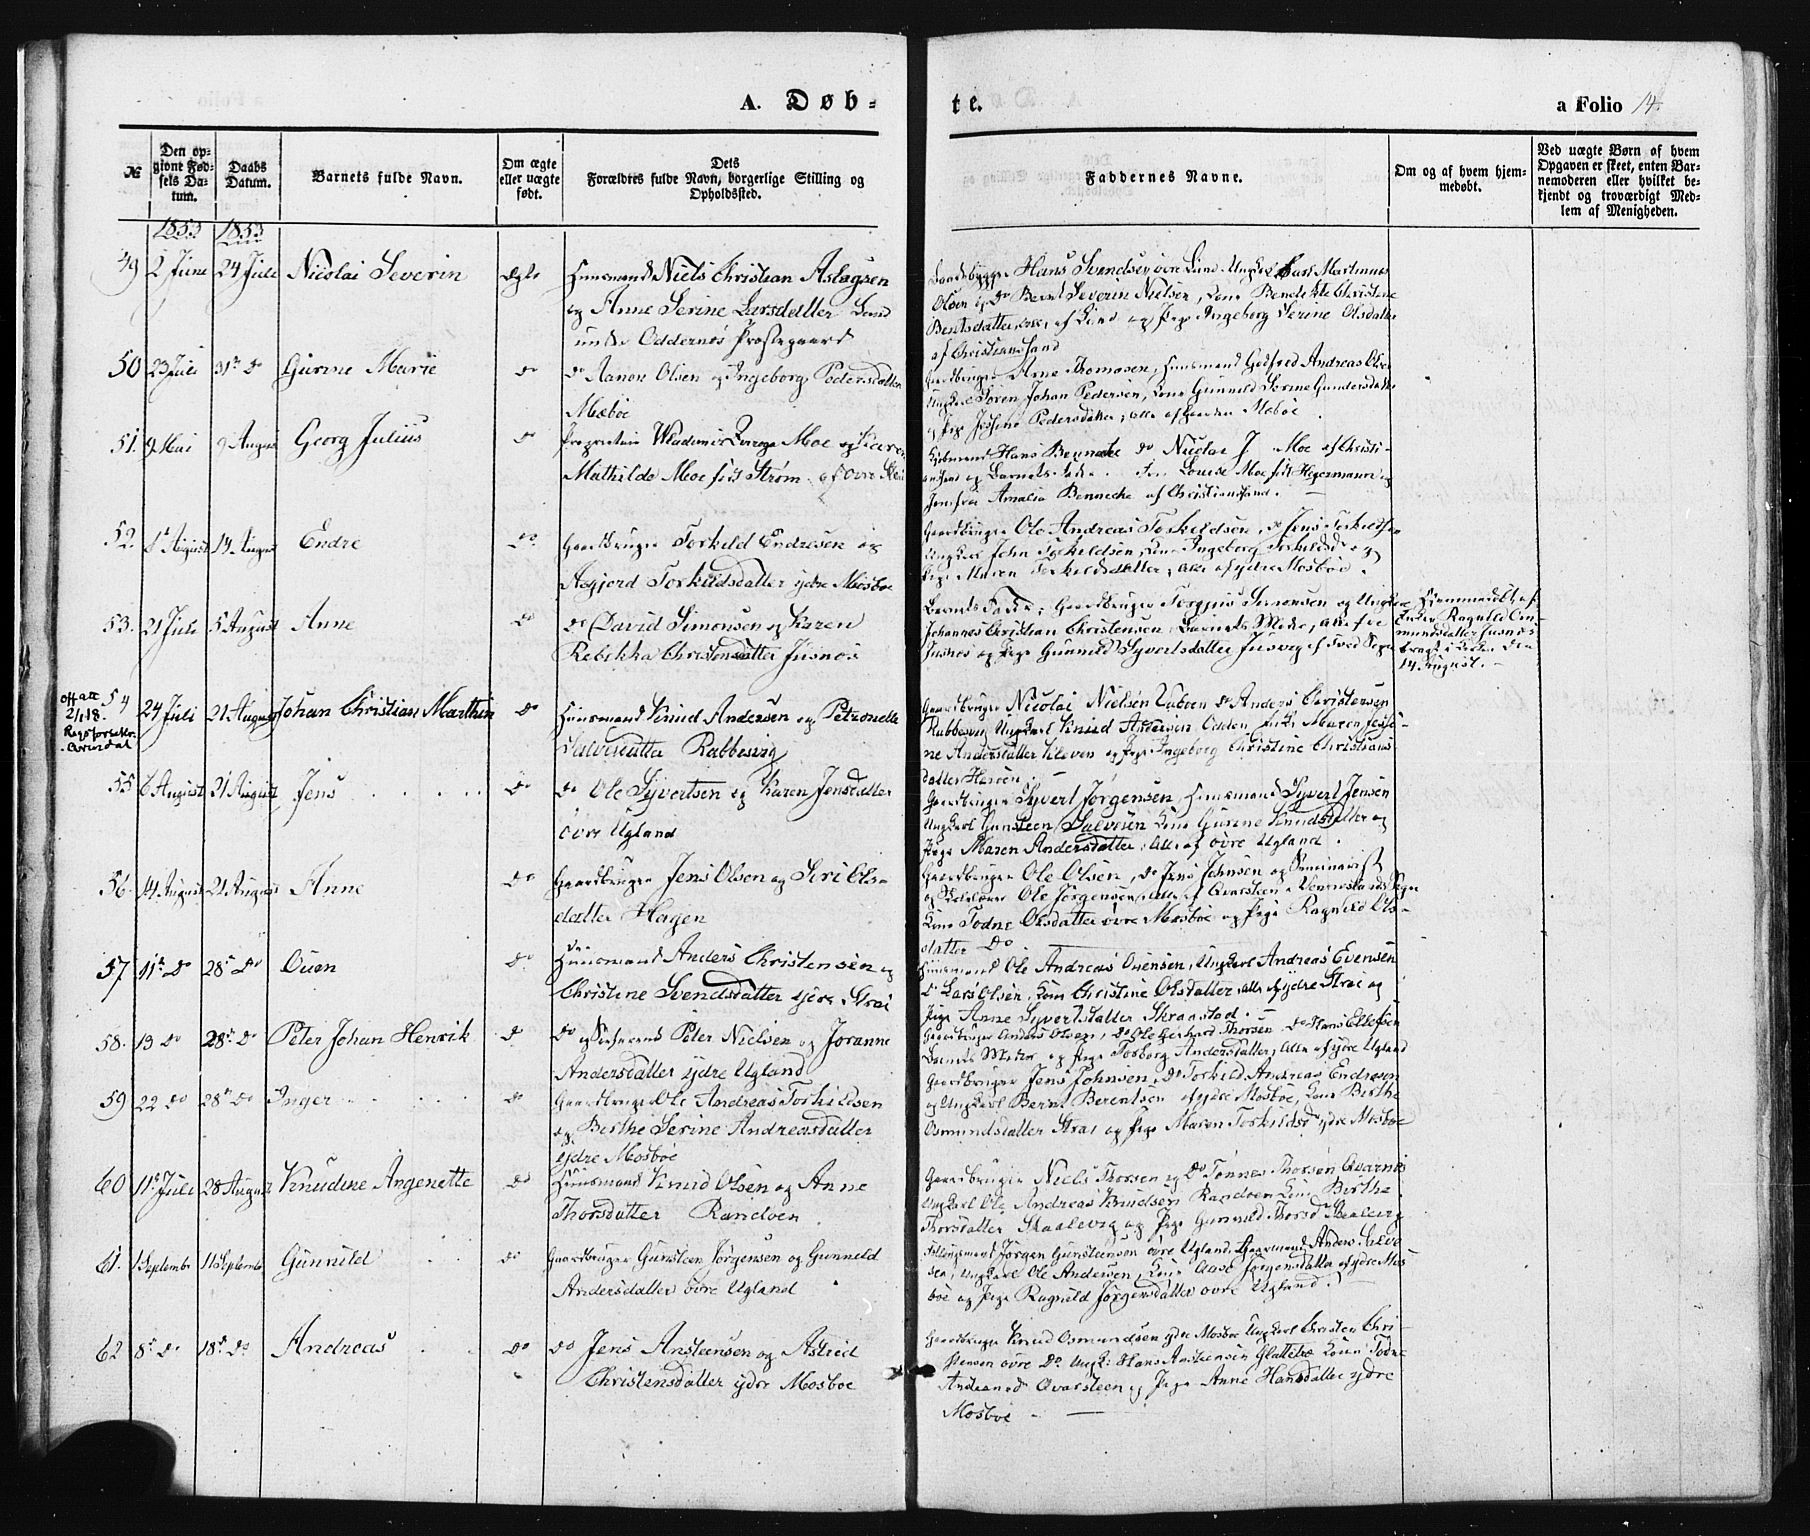 A. Døb-
te.
a Folio 14.
№
Den op-
givne Fød-
sels Da-
tum.
Daabs
Datum.
Barnets fulde Navn.
Om ægte
eller uægte
født.
Dets
Forældres fulde Navn, borgerlige Stilling og
Opholdssted.
Faddernes Navne.
Om og af hvem hjem-
medøbt.
Ved uægte Børn af hvem
Opgaven er skeet, enten Bar-
nemoderen eller hvilket be-
kjendt og troværdigt Med-
lem af Menigheden.
1853 1853
49 2 Juni 24 Juli Nicolai Severin Ægte Huusmand Niels Christian Aslagsen
og Anne Serine Larsdatter Lund
under Oddernes Præstegaard
Hans Svendsen øvre Lund Ungkarl Carl Martinus
Olsen og Do Bernt Severin Nielsen, Kone Bendikte Christine
Bentsdatter, alle af Lund og Pige Ingeborg Serine Olsdatter
af Christiansand
50 23 Juli 31te Do Gurine Marie do Do Aanon Olsen og Ingeborg Pedersdatter
Mæbøe
Gaardbruger Arne Thomasen, Huusmand Godfred Andreas Olsen
Ungkarl Søren Johan Pedersen, Kone Gunnild Serine Gundersdatter
og Pige Josefine Pedersdatter, alle af Gaarden Mæbøe.
51. 9 Mai 9 August Georg Julius do Proprietair Wladimir Moe og Karen
Mathilde Moe født Strøm af øvre
Kjøbmand Hans Bennecke Do Nicolai J. Moe af Christi-
ansand og Barnets Fader. Louise Moe født Hegermann og
Jomfru Amalia Bennecke af Christiansand.
52. 1ste August 14 August Endre do Gaardbruger Torkild Endresen og
Asgjerd Torkildsdatter ydre Mosbøe
Gaardbruger Ole Andreas Torkildsen, Do Jens Torkildsen
Ungkarl John Torkildsen, Kone Ingeborg Torkildsd og
Pige Maren Torkildsdatter, alle af ydre Mosbøe.
53. 21 Juli 5 August Anne do Do David Simonsen og Karen
Rebekka Christensdatter Jusnes
Barnets Fader, Gaardbruger Torgjus Simonsen og Ungkarl
Johannes Christian Christensen, Barnets Moder, alle fra
Jusnes og Pige Gunnild Syvertsdatter Jusvig af Sogn
Hjemmedøbt af
Enken Ragnild Om-
mundsdatter Jusnes
bragt i Kirken den
14 August.
Off att
2/1 18.
Arendal
54 24 Juli 21 August Johan Christian Marthin do Huusmand Knud Andersen og Petronelle
Salvesdatter Rabbesvig
Gaardbruger Nicolai Nielsen Do Anders Christensen
Rabbesvig Ungkarl Knud Andersen Odden Maren Josefi-
ne Andersdatter Kleven og Pige Ingeborg Christine Christians
datter Haaøen.
55 6 August 21 August Jens do Do Ole Syvertsen og Karen Jensdatter
øvre Ugland
Gaardbruger Syvert Jørgensen, Huusmand Syvert Jensen
Ungkarl Gunsteen Salvesen Kone Gurine Knudsdatter og
Pige Maren Andersdatter, alle af øvre Ugland.
56. 14 August 21 August Anne do Gaardbruger Jens Olsen og Siri Ols-
datter Hagen
Gaardbruger Ole Olsen, Do Jens Johnsen og Seminarist
og Skolelærer Ole Jørgensen, alle af Qvarsteen i Vennesland Sogn
Kone Todne Olsdatter øvre Mosbøe og Pige Ragnild Ols-
datter Do
57 11te Do 28de Do Ouen do Huusmand Anders Christensen og
Christine Svendsdatter ydre Strai
Huusmand Ole Andreas Ouensen, Ungkarl Andreas Evensen
Do Lars Olsen, Kone Christine Olsdatter, alle af ydre Strai og
Pige Anne Syvertsdatter Skraastad.
58. 13 Do 28de Do Peter Johan Henrik do Do Peter Nielsen og Joranne
Andersdatter ydre Ugland
Gaardbruger Anders Olsen, Do Ole Gerhard Thorsen, Do Hans Ellefsen
Barnets Moder og Pige Torborg Andersdatter, alle af ydre Ugland
59 22 Do 28de Do Inger do Gaardbruger Ole Andreas Torkildsen
og Birthe Serine Andreasdatter
ydre Mosbøe
Gaardbruger Jens Johnsen, Do Torkild Andreas Endresen
og Ungkarl Bernt Berentsen af ydre Mosbøe, Kone Birthe
Osmundsdatter Strai og Pige Maren Torkildsd ydre Mosbøe
60 11te Juli 28 August Knudine Angenette do Huusmand Knud Olsen og Anne
Thorsdatter Randøen
Gaardbruger Niels Thorsen og Do Tønnes Thorsen Qvarnes
Ungkarl Ole Andreas Knudsen Randøen Kone Birthe
Thorsdatter Skaalevig og Pige Gunnild Thorsd Skaalevig
61. 1 September 11 September Gunnild do Gaardbruger Gunsteen Jørgensen og Gunneld
Andersdatter øvre Ugland
Jørgen Gunsteensen øvre Ugland, Anders Salve
sen, Ungkarl Ole Andersen, Kone Aase Jørgensdatter af ydre Mos
bøe og Pige Ragnild Jørgensdatter øvre Ugland.
62 8de Do 18de Do Andreas do Do Jens Ansteensen og Astrid
Christensdatter ydre Mosbøe
Gaardbruger Knud Osmundsen ydre Mosbøe Ungkarl Christen Chri-
stensen øvre Do Ungk: Hans Ansteensen Glattebø Kone Todne
Qvarsteen og Pige Anne Hansdatter ydre
Mosbøe